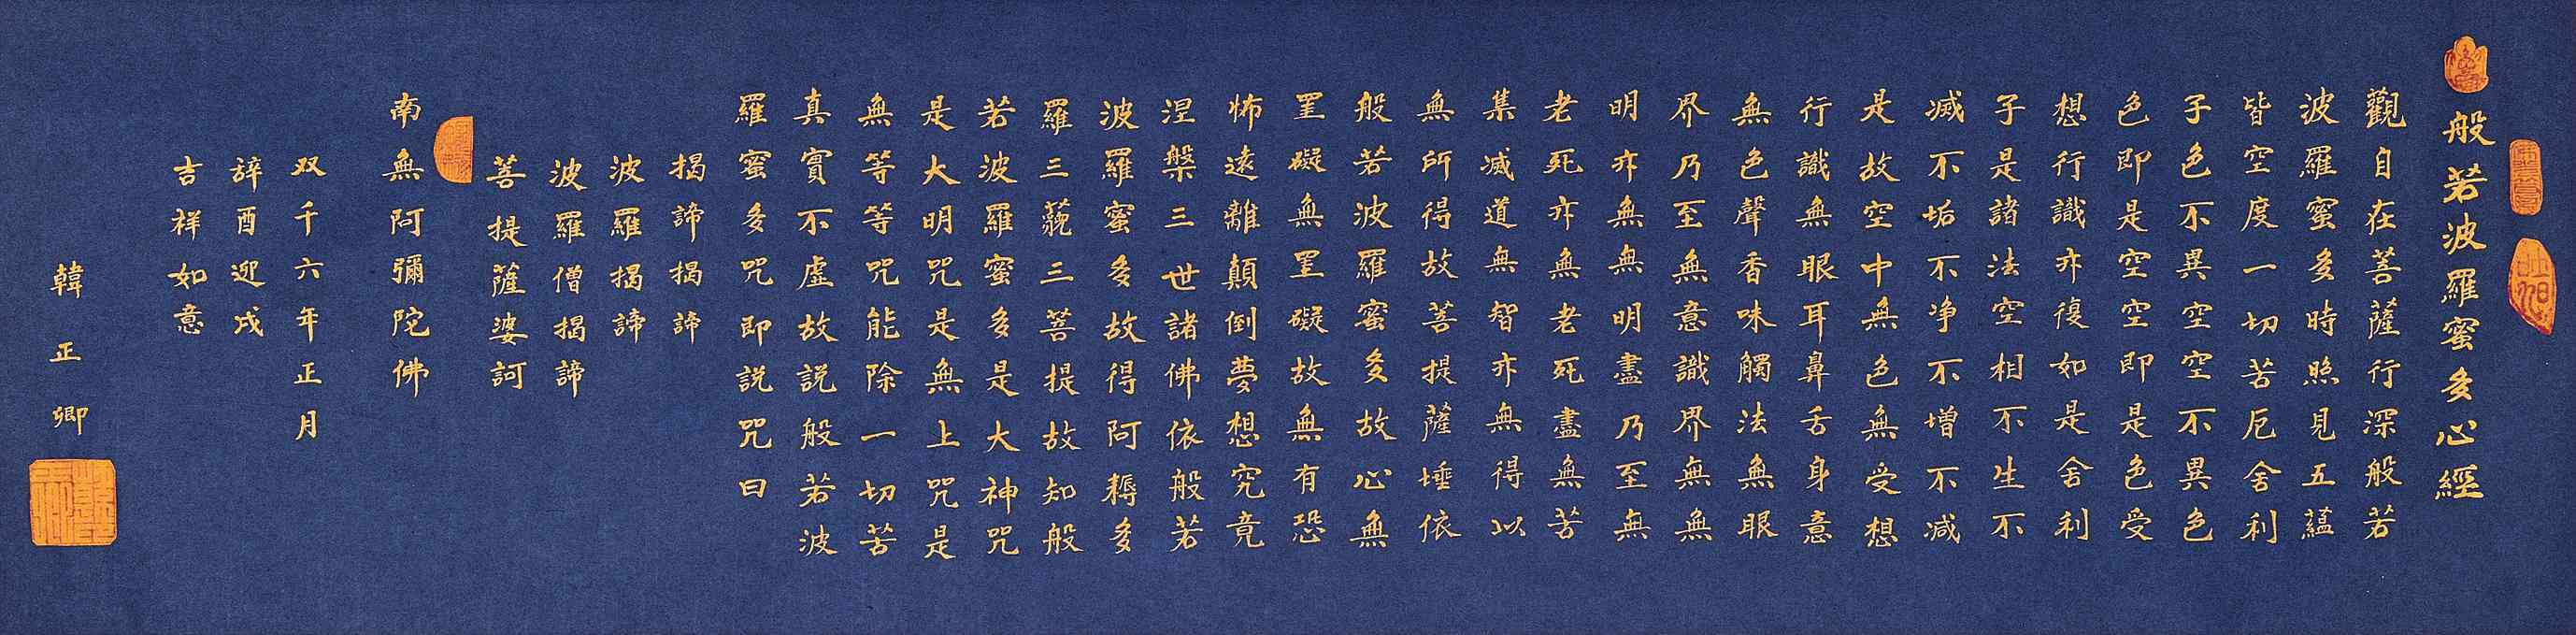 般若波羅蜜多心經
觀自在菩薩行深般若
波羅蜜多時照見五蘊
皆空度一切苦厄舍利
子色不異空空不異色
色即是空空即是色受
想行識亦復如是舍利
子是諸法空相不生不
滅不垢不净不增不减
是故空中無色無受想
行識無眼耳鼻舌身意
無色聲香味觸法無眼
界乃至無意識界無無
明亦無無明盡乃至無
老死亦無老死盡無苦
集滅道無智亦無得以
無所得故菩提薩埵依
般若波羅蜜多故心無
罣礙無罣礙故無有恐
怖遠離顛倒夢想究竟
涅槃三世諸佛依般若
波羅蜜多故得阿耨多
羅三藐三菩提故知般
若波羅蜜多是大神咒
是大明咒是無上咒是
無等等咒能除一切苦
真實不虛故説般若波
羅蜜多咒即説咒曰
揭諦揭諦
波羅揭諦
波羅僧揭諦
菩提薩婆訶
南無阿彌陀佛
双千六年正月
辭酉迎戌
吉祥如意
韓正卿